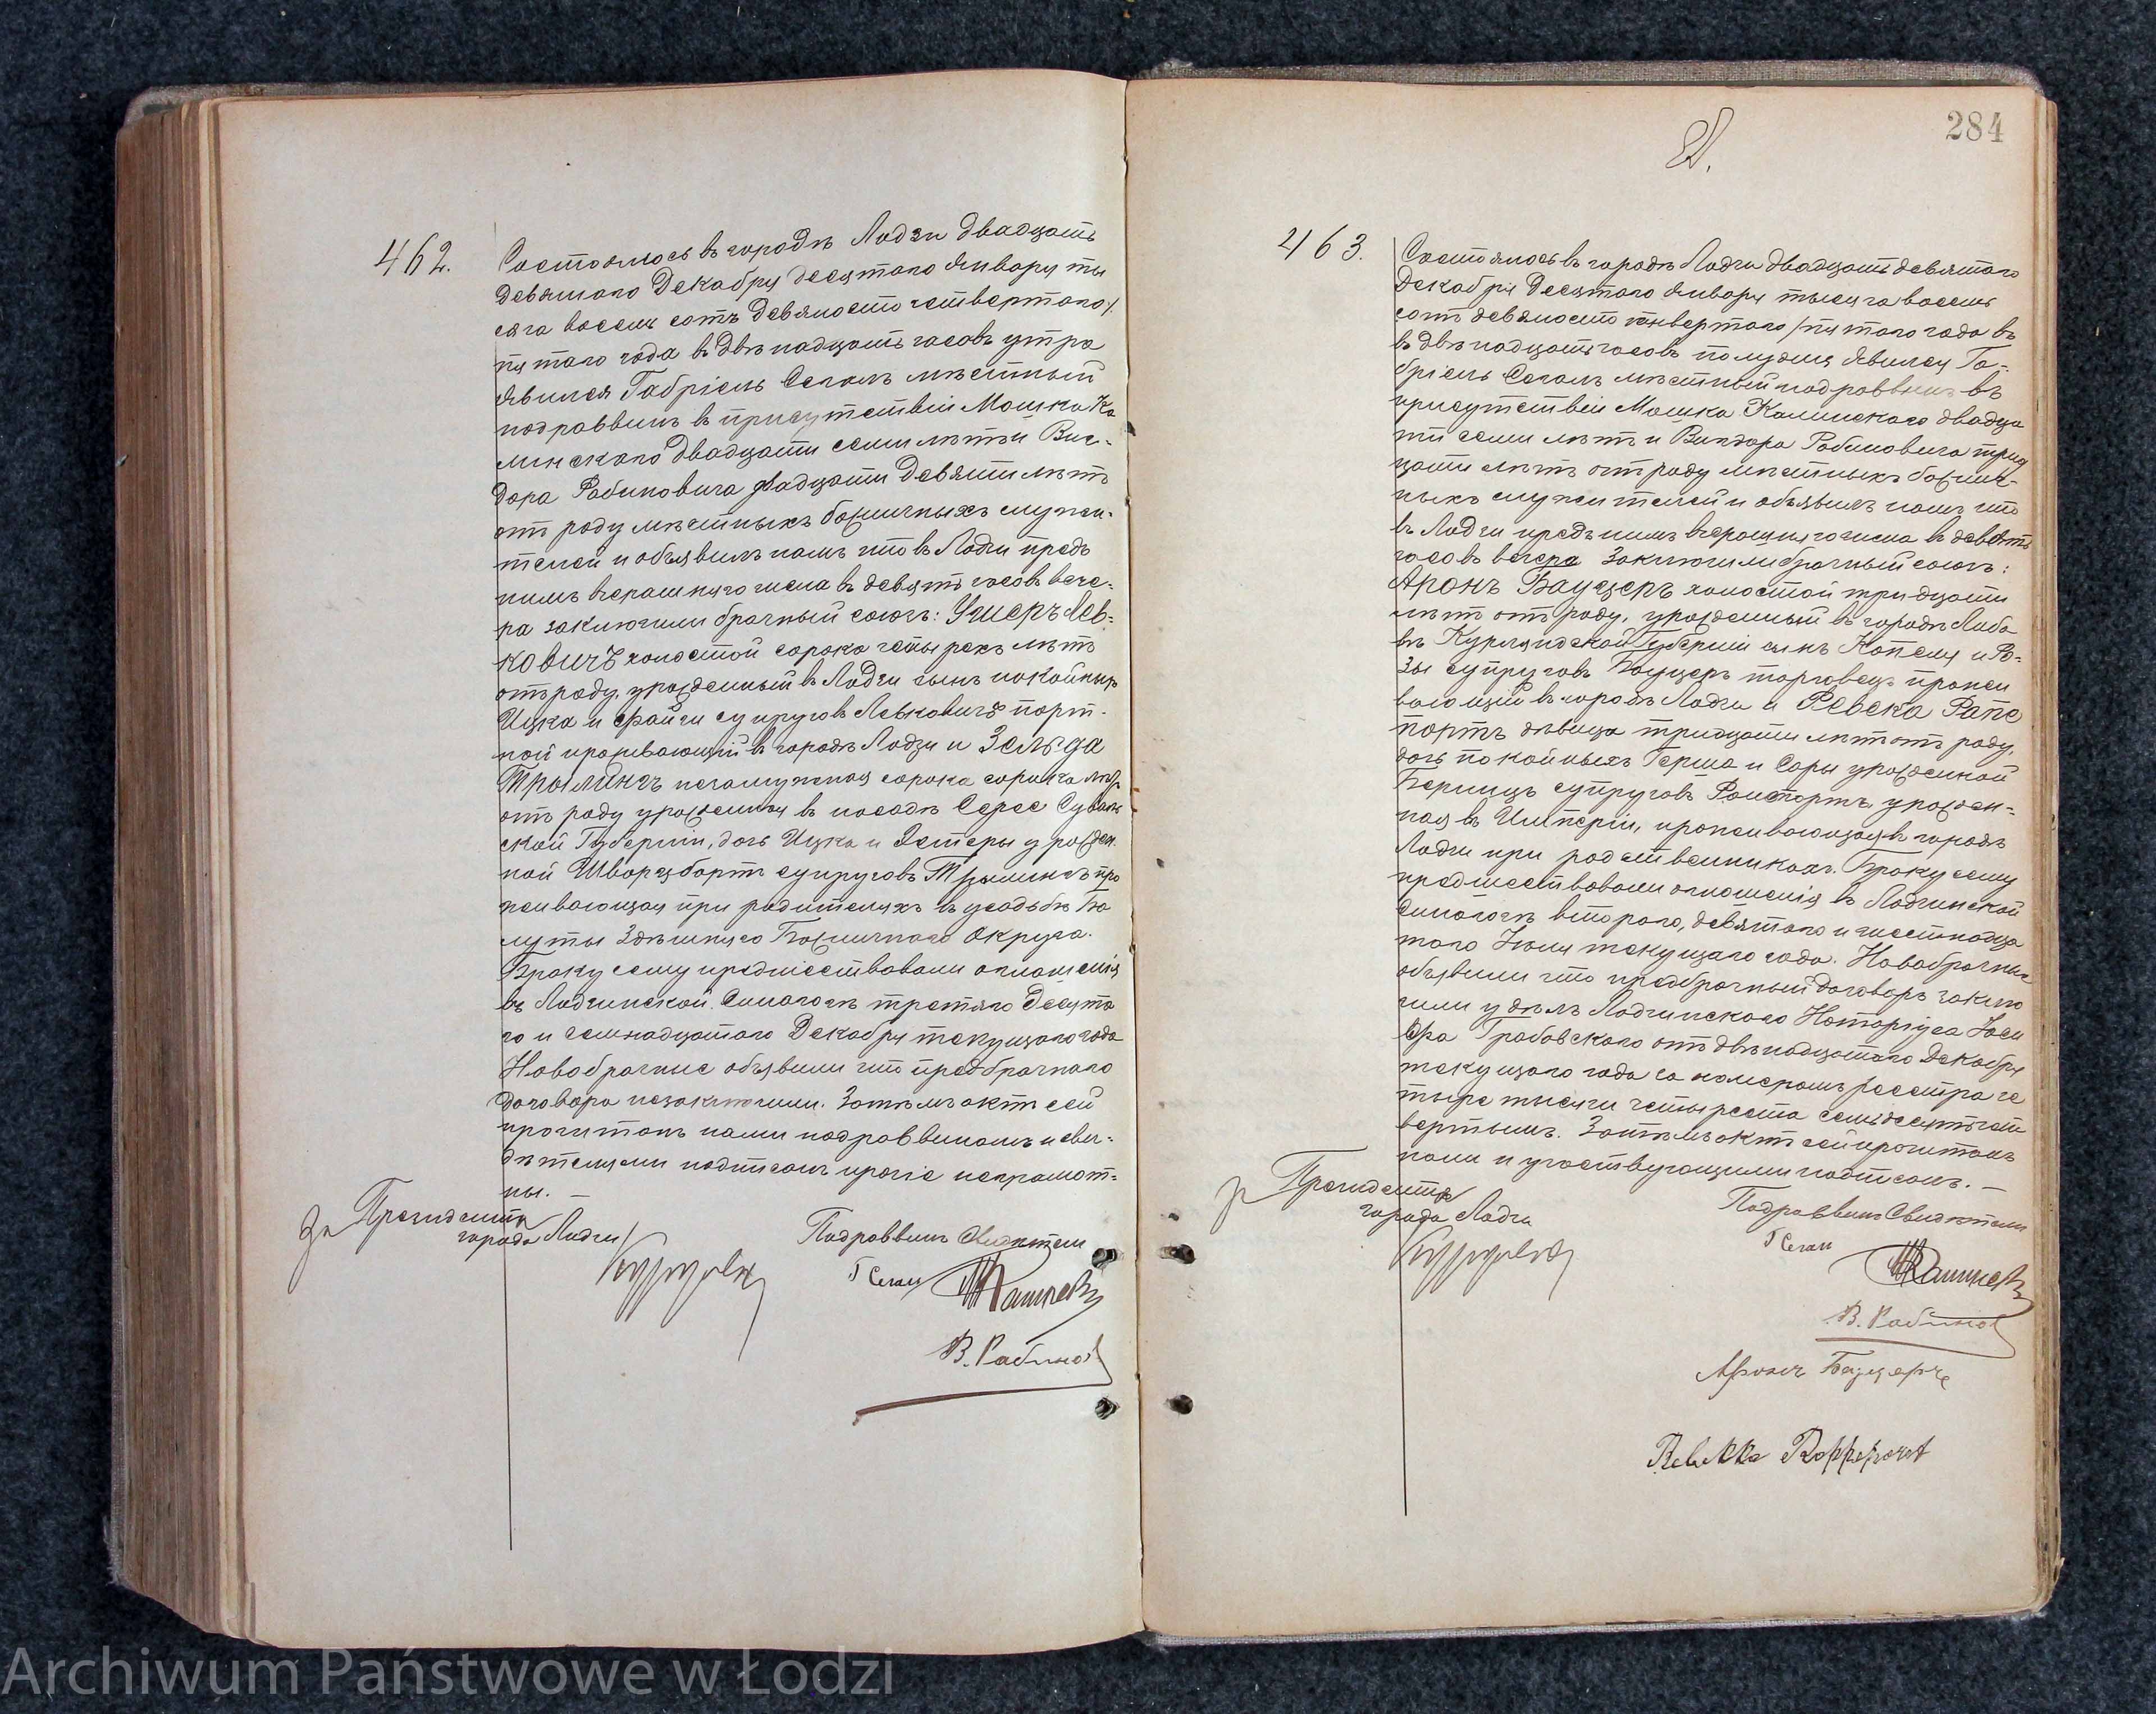 462.
Состоялось въ городѣ Лодзи двадцать
девятаго Декабря десятаго Января ты
сяча восемь сотъ девяносто четвертаго/
пятаго года въ двѣнадцать часовъ утра
Явился Габріель Сегалъ мѣстный
подраввинъ въ присутствіи Мошка Ка
линскаго двадцати семи лѣтъ и Виг-
дора Рабиновича двадцати девяти лѣтъ
отъ роду мѣстныхъ божничныхъ служи-
телей и объявилъ намъ что въ Лодзи предъ
нимъ вчерашняго числа въ девять часовъ вече-
ра заключили брачный союзъ: Ушеръ Лев-
ковичъ холостой сорока четырехъ лѣтъ
отъ роду, урожденный въ Лодзи сынъ покойныхъ
Ицка и Файги супруговъ Левковичъ порт-
ной проживающій въ городѣ Лодзи и Зельда
Трылингъ незамужняя сорока лѣтъ
отъ роду урожденная въ посадѣ Сувалк
ской Губерніи, дочь Ицка и Эстеры урожден
ной Шварцбортъ супруговъ Трылингъ про
живающая при родителяхъ въ усадьбѣ Ба
луты Здѣшняго Божничнаго Округа.
Браку сему предшествовали оглашенія
въ Лодзинской Синагогѣ третяго десята
го и семнадцатаго Декабря текущаго года
Новобрачные объявили что предбрачнаго
договора незаключили. Затѣмъ актъ сей
прочитанъ нами подраввиномъ и сви-
дѣтелями подписанъ прочіе неграмот-
ны. —
За Президента
города Лодзи
Подраввинъ Свидѣтели
Г Сегал
В. Рабинов
284
463.
Состоялось въ городѣ Лодзи двадцать девятаго
Декабря Десятаго Января тысяча восемь
сотъ девяносто четвертаго/пятаго года въ
въ двѣнадцать часовъ полудня Явился Га-
бріель Сегалъ мѣстный подраввинъ въ
присутствіи Мошка Калинскаго двадца
ти семи лѣтъ и Вигдора Рабиновича трид
цати лѣтъ отъ роду мѣстныхъ божнич-
ныхъ служителей и объявилъ намъ что
въ Лодзи предъ нимъ вчерашняго числа въ девять
часовъ вечера заключили брачный союзъ:
Аронъ Бауцеръ холостой тридцати
лѣтъ отъ роду, урожденный въ городѣ Либа
въ Курляндской Губерніи сынъ Копеля и Ро-
зы супруговъ Бауцеръ торговецъ прожи
вающій въ городѣ Лодзи и Ревека Рапе
портъ дѣвица тридцати лѣтъ отъ роду,
дочь покойныхъ Герша и Сары урожденной
Берницъ супруговъ Рапепортъ, урожден-
ная въ Имперіи, проживающая въ городѣ
Лодзи при родственникахъ. Браку сему
предшествовали оглашенія въ Лодзинской
Синагогѣ втораго, девятаго и шестнадца
таго Іюля текущаго года. Новобрачные
объявили что предбрачный договоръ заклю
чили у дѣлъ Лодзинскаго Нотаріуса Іоси
фа Грабовскаго отъ двѣнадцатаго Декабря
текущаго года за номеромъ реестра че
тыре тысячи четыреста семьдесятъ чет
вертымъ. Затѣмъ актъ сей прочитанъ
нами и участвующими подписанъ. —
За Президента
города Лодзи
Подраввинъ Свидѣтели
Г Сегал
В. Рабинов
Аронъ Бауцеръ
Rebekka Rappeport
Archiwum Państwowe w Łodzi